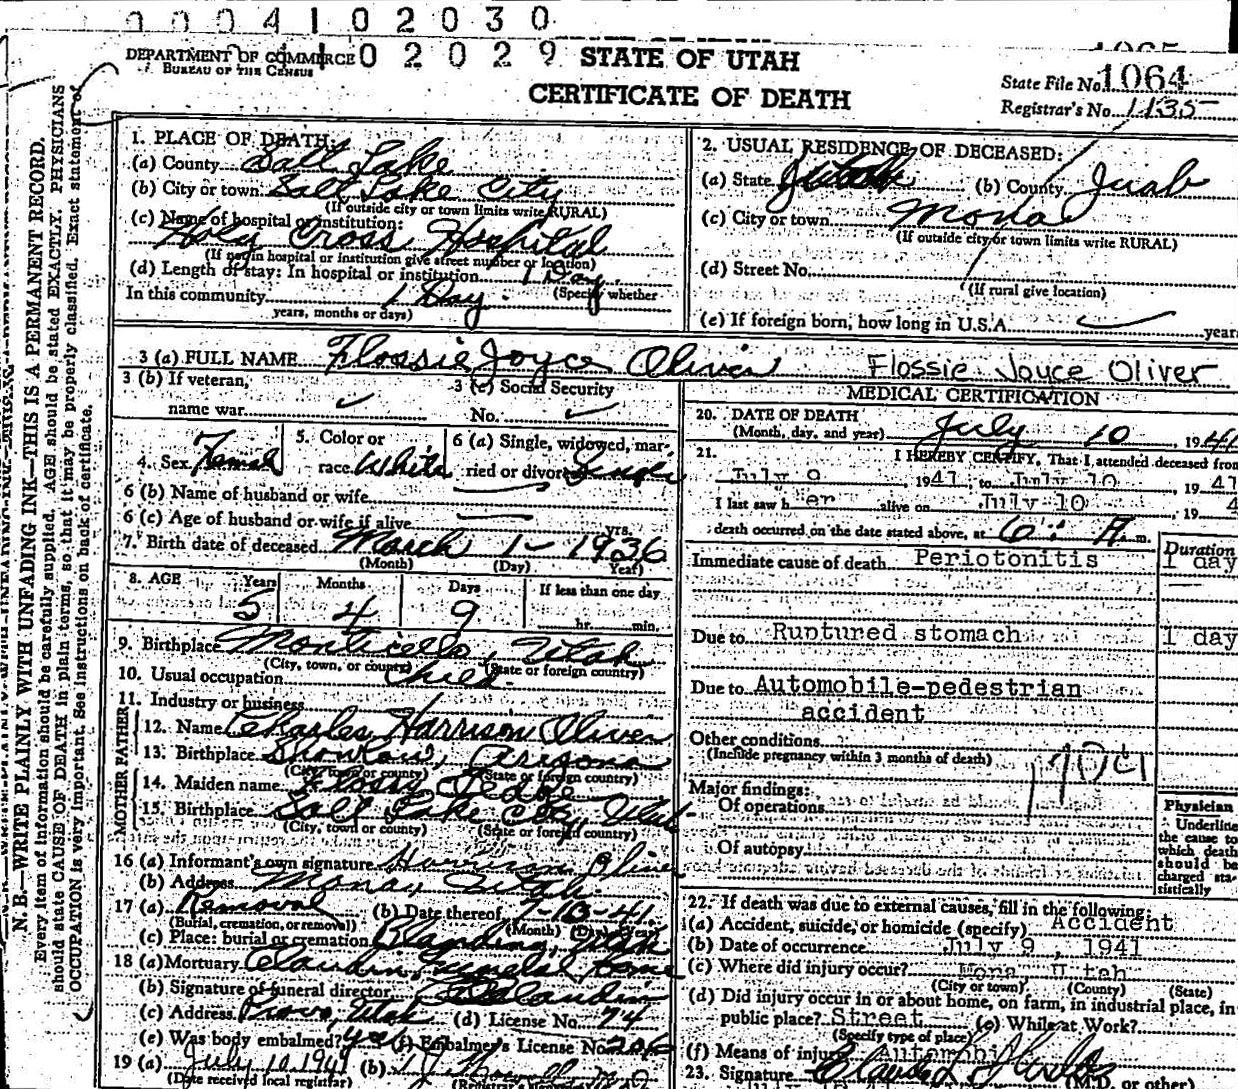 0 0 0 4 1 0 2 0 3 0
DEPARTMENT OF COMMERCE 0 2 0 2 9 STATE OF UTAH
BUREAU OF THE CENSUS
CERTIFICATE OF DEATH
State File No. 1064
Registrar's No. 1135
N. B.—WRITE PLAINLY WITH UNFADING INK—THIS IS A PERMANENT RECORD.
Every item of information should be carefully supplied. AGE should be stated EXACTLY. PHYSICIANS
should state CAUSE OF DEATH in plain terms, so that it may be properly classified. Exact statement of
OCCUPATION is very important. See instructions on back of certificate.
1. PLACE OF DEATH:
(a) County Salt Lake
(b) City or town Salt Lake City
(If outside city or town limits write RURAL)
(c) Name of hospital or institution:
Holy Cross Hospital
(If not in hospital or institution give street number or location)
(d) Length of stay: In hospital or institution 1 Day.
(Specify whether
In this community 1 Day.
years, months or days)
2. USUAL RESIDENCE OF DECEASED:
(a) State Utah (b) County Juab
(c) City or town Mona
(If outside city or town limits write RURAL)
(d) Street No.
(If rural give location)
(e) If foreign born, how long in U.S.A. years
3 (a) FULL NAME Flossie Joyce Oliver Flossie Joyce Oliver
3 (b) If veteran,
name war
3 (c) Social Security
No.
4. Sex Female
5. Color or
race White
6 (a) Single, widowed, mar-
ried or divorced Single
6 (b) Name of husband or wife
6 (c) Age of husband or wife if alive yrs.
7. Birth date of deceased March 1 - 1936
(Month) (Day) (Year)
8. AGE Years Months Days If less than one day
5 4 9 hr. min.
9. Birthplace Monticello, Utah
(City, town, or county) (State or foreign country)
10. Usual occupation Child
11. Industry or business
FATHER
12. Name Charles Harrison Oliver
13. Birthplace Arizona
(City, town or county) (State or foreign country)
MOTHER
14. Maiden name Flossy
15. Birthplace Salt Lake City, Utah
(City, town or county) (State or foreign country)
16 (a) Informant's own signature Harrison Oliver
(b) Address Mona, Utah
17 (a) Removal (b) Date thereof 7-10-41
(Burial, cremation, or removal) (Month) (Day) (Year)
(c) Place: burial or cremation Blanding, Utah
18 (a) Mortuary Claudin Funeral Home
(b) Signature of funeral director Claudin
(c) Address Provo, Utah (d) License No. 74
(e) Was body embalmed? yes (f) Embalmer's License No. 206
19 (a) July 10 1941 (b)
(Date received local registrar)
MEDICAL CERTIFICATION
20. DATE OF DEATH
(Month, day, and year) July 10, 1941
21. I HEREBY CERTIFY, That I attended deceased from
July 9 1941, to July 10 1941
I last saw her alive on July 10 194
death occurred on the date stated above, at 6: A. m.
Duration
Immediate cause of death Periotonitis 1 day
Due to Ruptured stomach 1 day
Due to Automobile-pedestrian
accident
Other conditions
(Include pregnancy within 3 months of death)
170d
Major findings:
Of operations
Of autopsy
Physician
Underline
the cause to
which death
should be
charged sta-
tistically
22. If death was due to external causes, fill in the following:
(a) Accident, suicide, or homicide (specify) Accident
(b) Date of occurrence July 9, 1941
(c) Where did injury occur? Mona, Utah
(City or town) (County) (State)
(d) Did injury occur in or about home, on farm, in industrial place, in
public place? Street (e) While at Work?
(Specify type of place)
(f) Means of injury Automobile
23. Signature (M.D. or other)